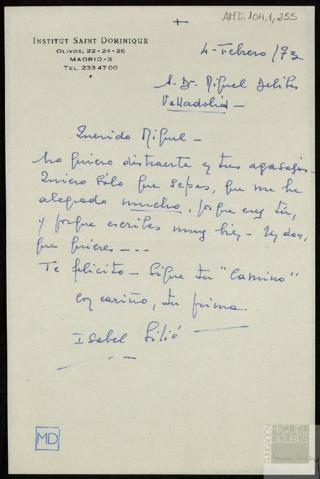 AMD, 104, 1, 255
INSTITUT SAINT DOMINIQUE
OLIVOS, 22-24-26
MADRID-3
TEL. 233 47 00
4-Febrero/73
S. D. Miguel Delibes
Valladolid-
Querido Miguel-
No quiero distraerte y tus agasajos-
Quiero sólo que sepas, que me ha
alegrado mucho, porque eres tú,
y porque escribes muy bien-
que quieres ---
Te felicito- Sigue tu "Camino"
con cariño, tu prima
Isabel Silió
MD
FUNDACIÓN
MIGUEL
DELIBES